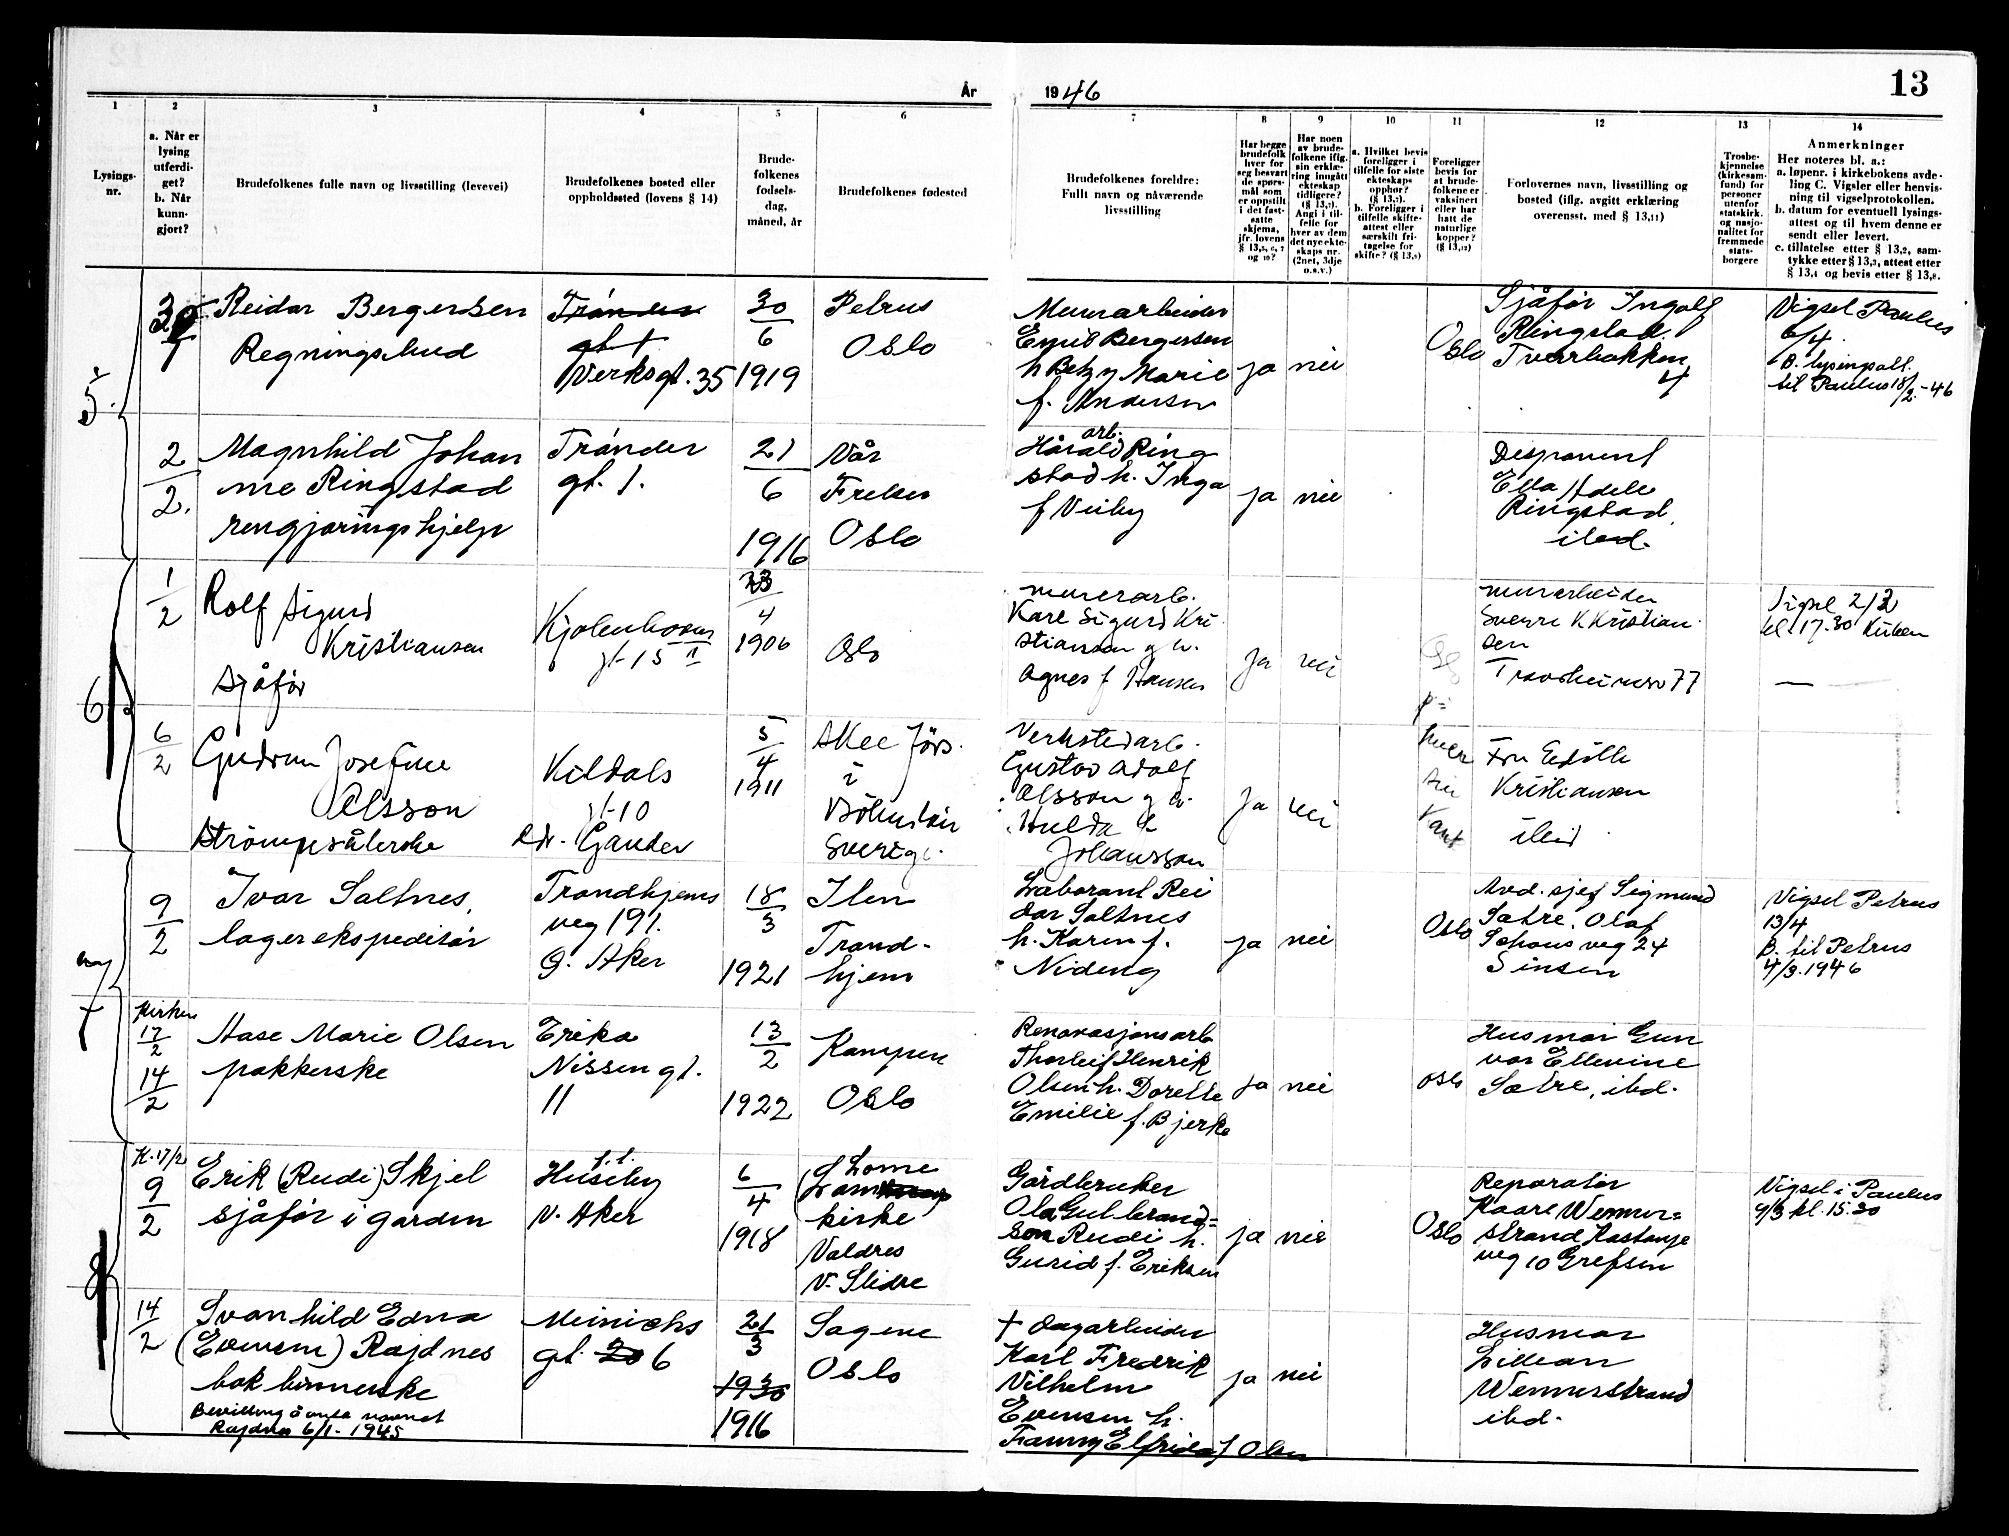 År
1946
13
1
2
3
4
5
6
7
8
9
10
11
12
13
14
Lysings-
nr.
a. Når er
lysing
utferdi-
get?
b. Når
kunn-
gjort?
Brudefolkenes fulle navn og livsstilling (levevei)
Brudefolkenes bosted eller
oppholdssted (lovens § 14)
Brude-
folkenes
fødsels-
dag,
måned, år
Brudefolkenes fødested
Brudefolkenes foreldre:
Fullt navn og nåværende
livsstilling
Har begge
brudefolk
hver for
seg besvart
de spørs-
mål som
er oppstilt
i det fast-
satte
skjema,
jfr. lovens
§ 13,5, 6, 7
og 10?
Har noen
av brude-
folkene iflg.
sin erklæ-
ring inngått
ekteskap
tidligere?
(§ 13,7).
Angi i til-
felle for
hver av dem
det nye ekte-
skaps nr.
(2net, 3dje
o.s.v.)
a. Hvilket bevis
foreligger i
tilfelle for siste
ekteskaps
opphør?
(§ 13,7).
b. Foreligger i
tilfelle skifte-
attest eller
særskilt fri-
tagelse for
skifte? (§ 13,8)
Foreligger
bevis for
at brude-
folkene er
vaksinert
eller har
hatt de
naturlige
kopper?
(§ 13,12)
Forlovernes navn, livsstilling og
bosted (iflg. avgitt erklæring
overensst. med § 13,11)
Trosbe-
kjennelse
(kirkesam-
fund) for
personer
utenfor
statskirk.
og nasjo-
nalitet for
fremmede
stats-
borgere
Anmerkninger
Her noteres bl. a.:
a. løpenr. i kirkebokens avde-
ling C. Vigsler eller henvis-
ning til vigselprotokollen.
b. datum for eventuell lysings-
attest og til hvem denne er
sendt eller levert.
c. tillatelse etter § 13,2, sam-
tykke etter § 13,3, attest etter
§ 13,4 og bevis etter § 13,8.
5
Reidar Bergersen
Regningsbud
Trønder
gt 1
Verksgt. 35
30
6
1919
Petrus
Oslo
Murarbeider
Emil Bergersen
h Betzy Marie
f. Andersen
ja
nei
Oslo
Sjåfør Ingolf
Ringstad.
Tverrbakken
4
Vigsel Paulus
6/4
B. lysingsatt.
til Paulus 18/2-46
2
2.
Magnhild Johan
ne Ringstad
rengjøringshjelp
Trønder
gt. 1.
21
6
1916
Vår
Frelser
Oslo
arb.
Harald Ring
stad h. Inga
f Veiby
ja
nei
Disponent
Ella Adele
Ringstad
ibid.
6
1
2
Rolf Sigurd
Kristiansen
Sjåfør
gt 15 II
23
4
1906
Oslo
murerarb.
Kare Sigurd Kri
stiansen g h.
Agnes f Hansen
Ja
nei
murarbeider
Sverre K Kristian
sen
77
Vigsel 2/3
kl 17.30 Kirken
—
6
2
Gudrun Josefine
Olsson
Strømpesålerske
Kildals
gt 10
5
4
1911
i
Sverige.
Verkstedarb.
Gustav Adolf
Olsson g h.
Hulda f
Johansson
Ja
nei
Fru Edith
Kristiansen
ibid
7
9
2
Ivar Saltnes,
lagerekspeditør
Trondhjems
veg 191.
Ø. Aker
18
3
1921
Ilen
Trond-
hjem
Laborant Rei
dar Saltnes
h. Karen f.
Nideng
ja
nei
Oslo
Avd. sjef Sigmund
Sætre, Olaf
Schous veg 24
Sinsen
Vigsel Petrus
13/4
B. til Petrus
4/3.1946
Kirken
17
2
14
2
Aase Marie Olsen
pakkerske
Erika
Nissen gt.
11
13
2
1922
Kampen
Oslo
Renovasjonsarb
Thorleif Henrik
Olsen h. Dorette
Emilie f. Bjerke
ja
nei
Oslo
Husmor Gun
vor Ellevine
Sætre, ibd.
8
K. 17/2
9
2
Erik (Rudi) Skjel
sjåfør i gården
Huseby
V. Aker
6
4
1918
Lome
kirke
Valdres
V. Slidre
Gårdbruker
Ola Gulbrand=
sen Rudi h.
Gurid f. Eriksen
ja
nei
Oslo
Reparatør
Kaare Wenner=
strand Kastanje
veg 10 Grefsen
Vigsel i Paulus
9/3 kl. 15.30
14
2
Svanhild Edna
(Evensen) Rajdnes
bokbinnerske
Bevilling å anta navnet
Rajdnes 6/1-1945
Meinichs
gt. 20 6
21
3
1930
1916
Sagene
Oslo
† dagarbeider
Karl Fredrik
Vilhelm
Evensen h.
Fanny Elfrida f Olsen
ja
nei
Husmor
Lillean
Wennerstrand
ibd.